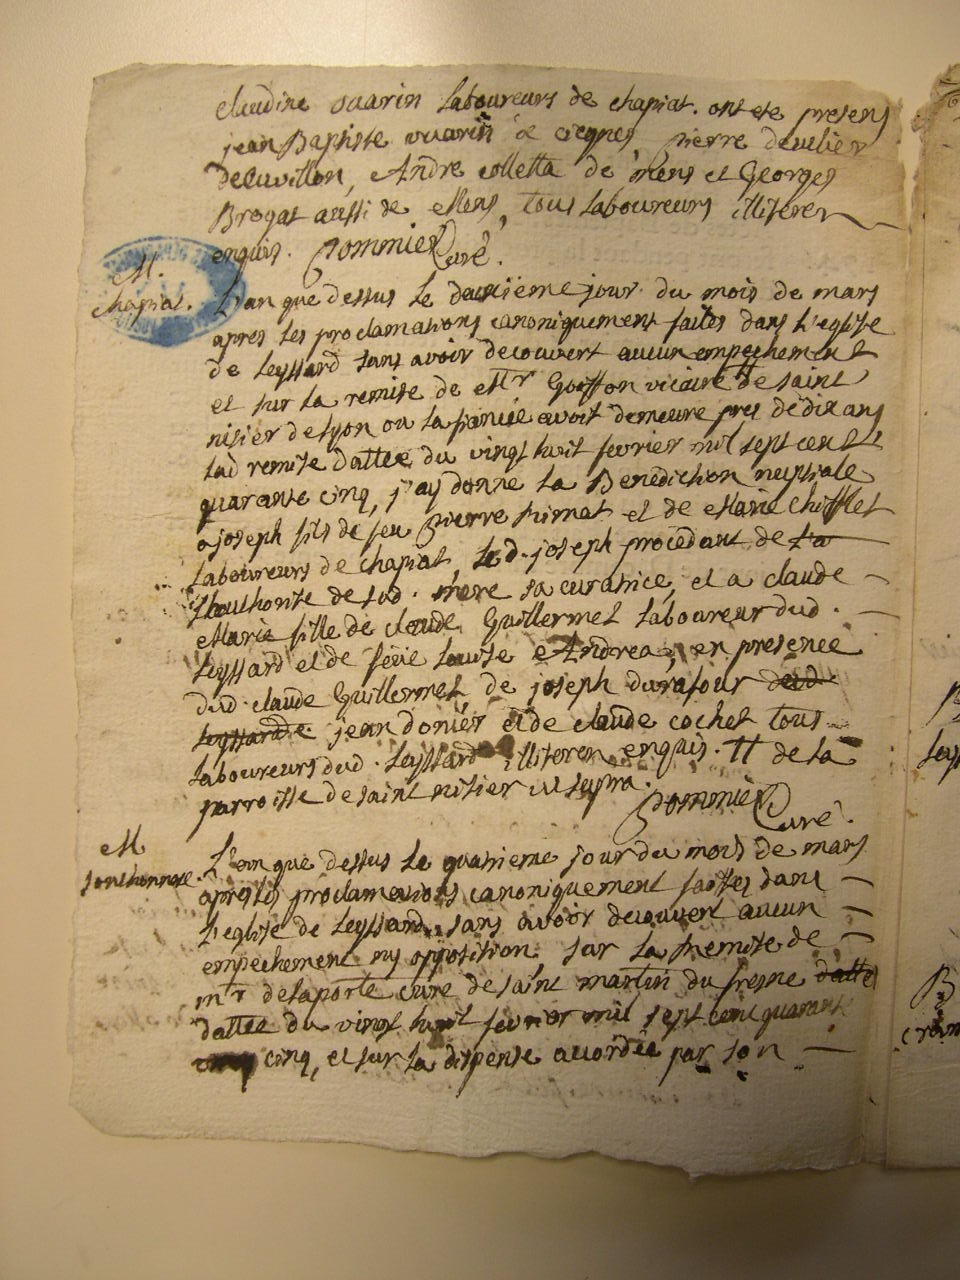 claudine vuarin laboureurs de chapiat. ont ete presens
jean Baptiste vuarin de ciegnes, pierre deulier
decuvillon, Andre colletta de mens et Georges
Brogat aussi de Mens, tous laboureurs illiteres
enquis. Pommier Curé.
M.
chapiat.
L'an que dessus le deuxième jour du mois de mars
apres les proclamations canoniquement faites dans l'eglise
de leyssard sans avoir decouvert aucun empechement
et sur la remise de Mr Goiffon vicaire de saint
nisier de lyon ou la fiancée avoit demeure pres de dix ans
lad remise dattée du vingt huit fevrier mil sept cent
quarante cinq, j'ay donne la Benediction nuptiale
a joseph fils de feu pierre primat et de Marie Chifflet
laboureurs de chapiat led. joseph procedant de la
l'authorité de sad. mere sa curatrice, et a claude
Marie fille de claude Guillermet laboureur dud.
leyssard et de feüe louise Andrea, en presence
dud claude Guillermet de joseph durafour dud
leyssard de jean donier et de claude cochet tous
laboureurs dud. leyssard illiteres enquis. TT de la
parroisse de saint nisier ut supra.
Pommier Curé.
M
sonthonnax.
L'an que dessus le quatrieme jour du mois de mars
apres les proclamations canoniquement faittes dans
l'eglise de leyssard, sans avoir decouvert aucun
empechement ny opposition sur la Remise de
mr delaporte cure de saint martin du fresne datte
dattée du vingt huit fevrier mil sept cent quarante
cinq, et sur la dispense accordée par son